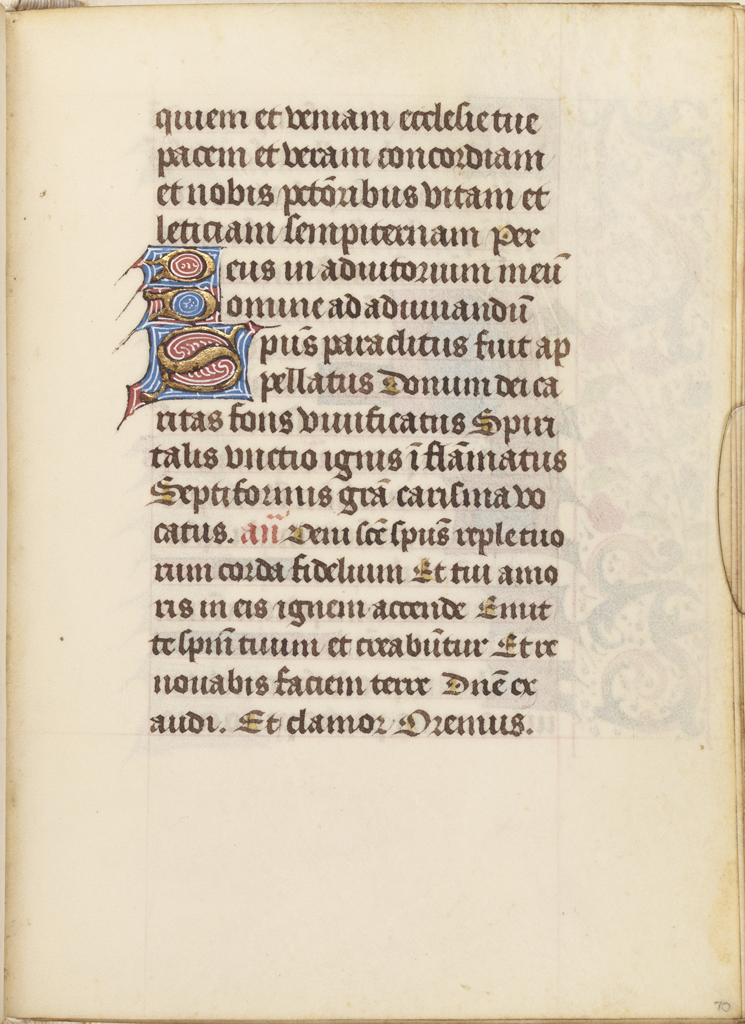 quiem et veniam ecclesie tue
pacem et veram concordiam
et nobis pctōribus vitam et
leticiam sempiternam Per
Deus in adiutorium meū
Domine ad adiuuandū
Spūs paraclitus fuit ap
pellatus Donum dei ca
ritas fons viuificatus Spiri
talis vnctio ignis īflāmatus
Septiformis grā carisma vo
catus. añ Veni scē spūs reple tuo
rum corda fidelium Et tui amo
ris in eis ignem accende Emit
te spm̄ tuum et creabūtur Et re
nouabis faciem terre Dnē ex
audi. Et clamor Oremus.
70